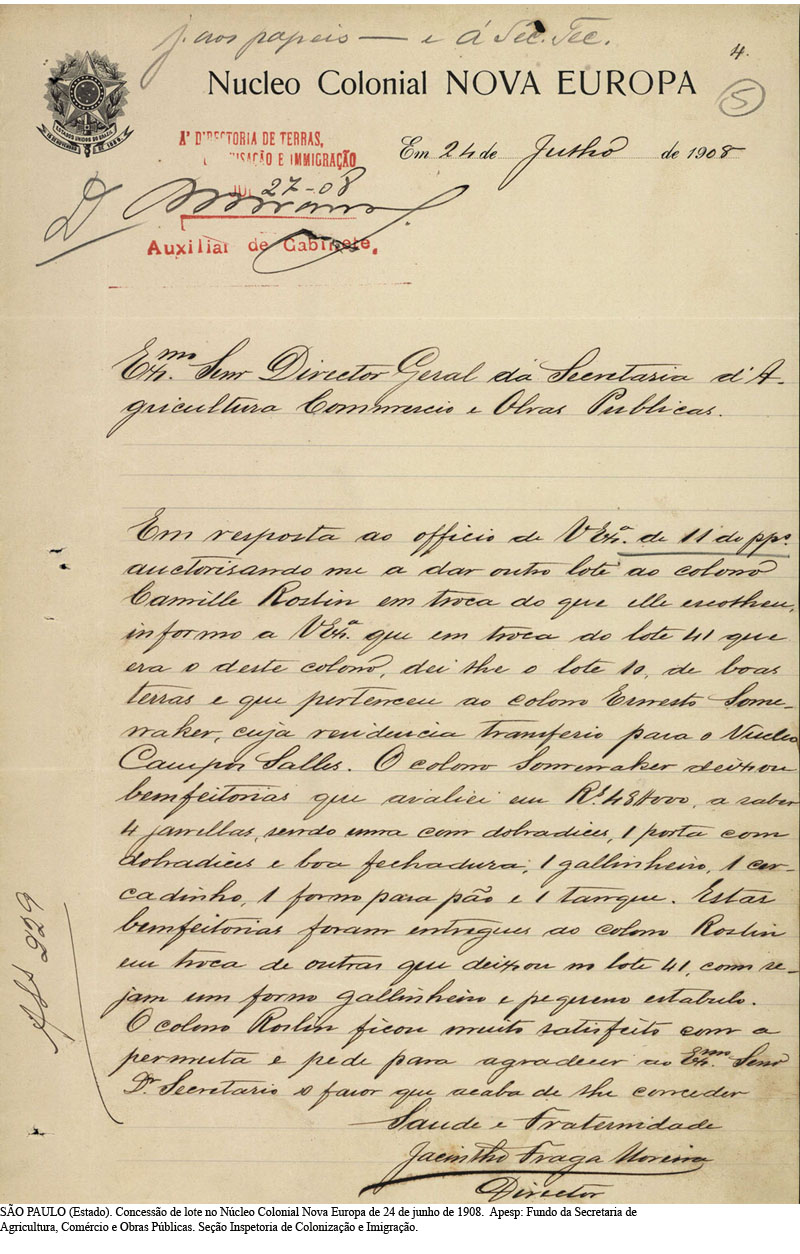 j. aos papeis — e á Sec. Tec.
4.
5
Nucleo Colonial NOVA EUROPA
ESTADOS UNIDOS DO BRAZIL
15 DE NOVEMBRO DE 1889
Em 24 de Julho de 1908
A' DIRECTORIA DE TERRAS,
E IMMIGRAÇÃO
27-08
D
Auxiliar de Gabinete.
Exmo. Senr Director Geral da Secretaria d'A-
gricultura Commercio e Obras Publicas.
Em resposta ao officio de V Exª. de 11 do pp.
auctorisando me a dar outro lote ao colono
Camille Roslin em troca do que elle escolheu,
informo a V Exª. que em troca do lote 41 que
era o deste colono, dei lhe o lote 10, de boas
terras e que pertenceu ao colono Ernesto Some-
raker, cuja residencia transferio para o Nucleo
Campos Salles. O colono Someraker deixou
bemfeitorias que avaliei em Rs. 48$000, a saber
4 janellas, sendo uma com dobradices, 1 porta com
dobradices e boa fechadura, 1 gallinheiro, 1 cer-
cadinho, 1 forno para pão e 1 tanque. Estas
bemfeitorias foram entregues ao colono Roslin
em troca de outras que deixou no lote 41, como se-
jam um forno gallinheiro e pequeno estabulo.
O colono Roslin ficou muito satisfeito com a
permuta e pede para agradecer ao Exmo. Senr
Dr. Secretario o favor que acaba de lhe conceder
Saude e Fraternidade
Jacintho Fraga Moreira
Director
929
SÃO PAULO (Estado). Concessão de lote no Núcleo Colonial Nova Europa de 24 de junho de 1908. Apesp: Fundo da Secretaria de
Agricultura, Comércio e Obras Públicas. Seção Inspetoria de Colonização e Imigração.